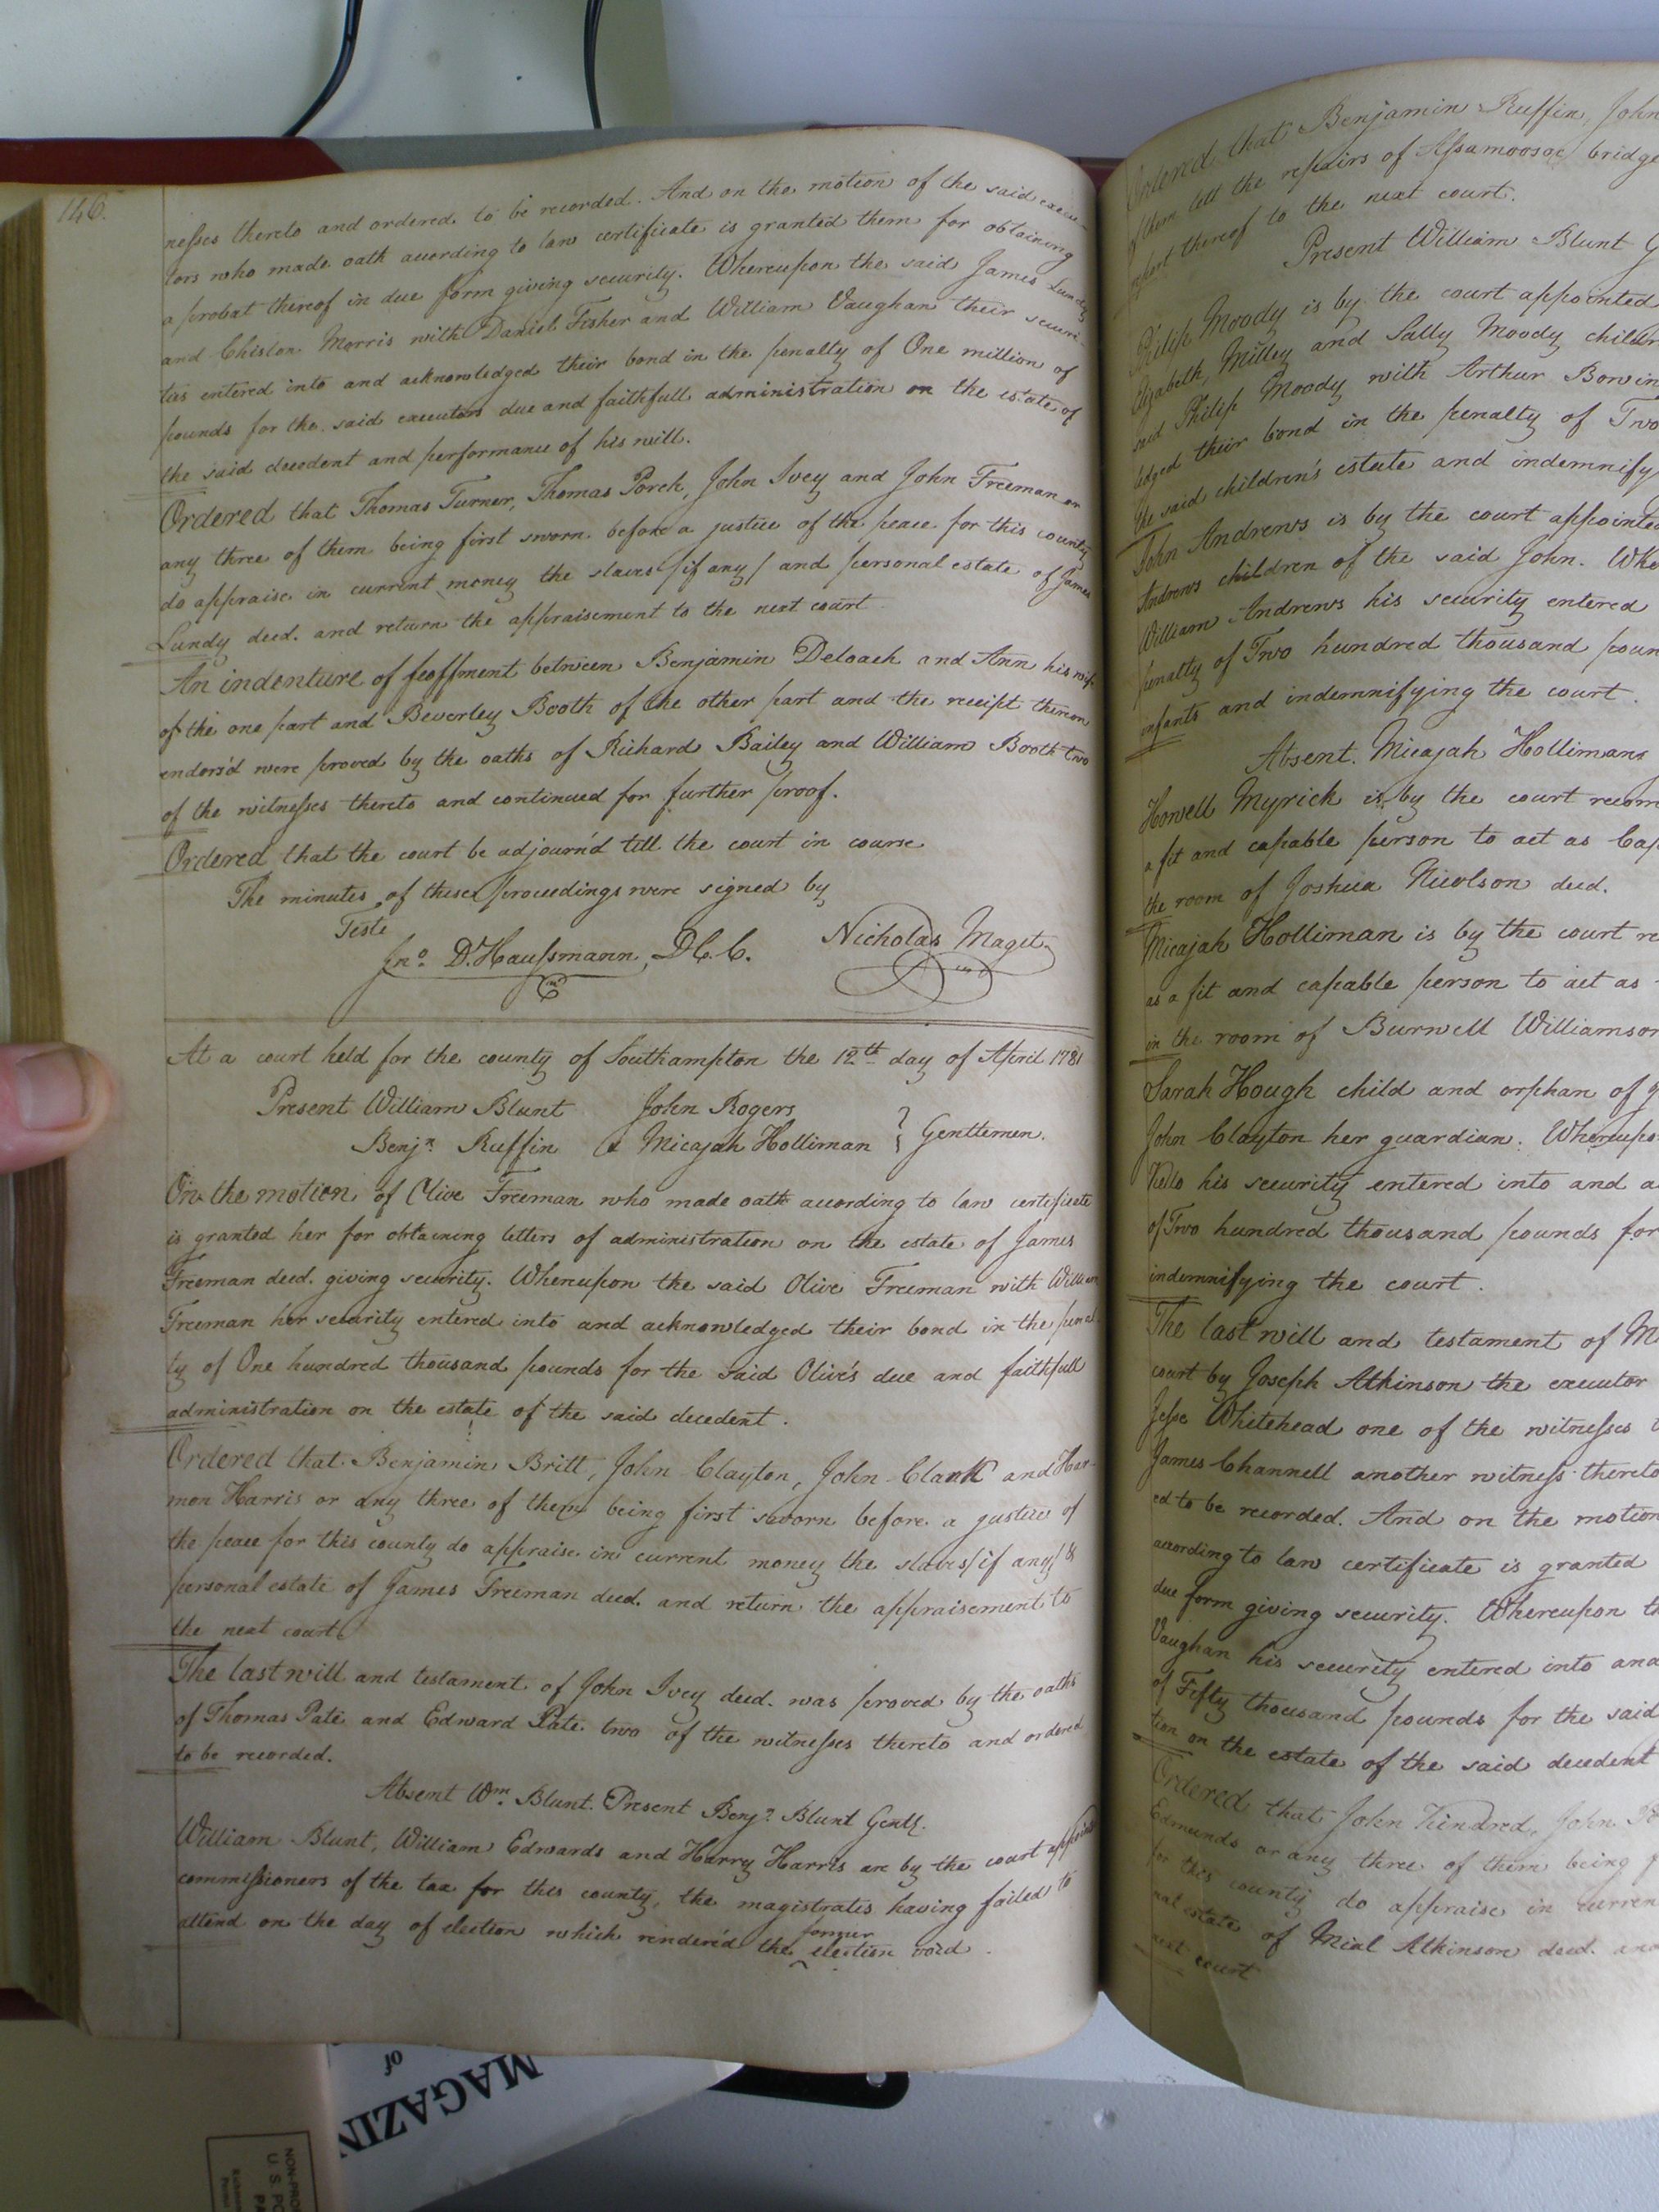 146.
nesses thereto and ordered to be recorded. And on the motion of the said execu-
tors who made oath according to law certificate is granted them for obtaining
a probat thereof in due form giving security. Whereupon the said James Lundy
and Chislon Morris with Daniel Fisher and William Vaughan their securi-
ties entered into and acknowledged their bond in the penalty of One million of
pounds for the said executors due and faithfull administration on the estate of
the said decedent and performance of his will.
Ordered that Thomas Turner, Thomas Porch, John Ivey and John Freeman or
any three of them being first sworn before a justice of the peace for this county
do appraise in current money the slaves /if any/ and personal estate of James
Lundy decd. and return the appraisement to the next court
An indenture of feoffment between Benjamin Deloach and Ann his wife
of the one part and Beverley Booth of the other part and the receipt thereon
endors'd were proved by the oaths of Richard Bailey and William Booth two
of the witnesses thereto and continued for further proof.
Ordered that the court be adjourn'd till the court in course
The minutes of these proceedings were signed by
Teste
Jno. D. Haussmann, D.C.C. Nicholas Maget
At a court held for the county of Southampton the 12th day of April 1781
Present William Blunt John Rogers
Benjn. Ruffin & Micajah Holliman } Gentlemen.
On the motion of Olive Freeman who made oath according to law certificate
is granted her for obtaining letters of administration on the estate of James
Freeman decd. giving security. Whereupon the said Olive Freeman with William
Freeman her security entered into and acknowledged their bond in the penal-
ty of One hundred thousand pounds for the said Olive's due and faithfull
administration on the estate of the said decedent.
Ordered that Benjamin Britt, John Clayton, John Clark and Har-
mon Harris or any three of them being first sworn before a justice of
the peace for this county do appraise in current money the slaves /if any/ &
personal estate of James Freeman decd. and return the appraisement to
the next court
The last will and testament of John Ivey decd. was proved by the oaths
of Thomas Pate and Edward Pate two of the witnesses thereto and ordered
to be recorded.
Absent Wm. Blunt. Present Benjn. Blunt Gentl.
William Blunt, William Edwards and Harry Harris are by the court appointed
commissioners of the tax for this county, the magistrates having failed to
attend on the day of election which render'd the former election void.
Ordered that Benjamin Ruffin, John
of them lett the repairs of Assamoosoc bridge
report thereof to the next court.
Present William Blunt G
Philip Moody is by the court appointed
Elizabeth, Milley and Sally Moody childr
said Philip Moody with Arthur Bowin
ledged their bond in the penalty of Two
the said children's estate and indemnify
John Andrews is by the court appointed
Andrews children of the said John. Whe
William Andrews his security entered
penalty of Two hundred thousand poun
infants and indemnifying the court.
Absent. Micajah Holliman
Howell Myrick is by the court recom
a fit and capable person to act as Cap
the room of Joshua Nicolson decd.
Micajah Holliman is by the court re
as a fit and capable person to act as
in the room of Burwell Williamson
Sarah Hough child and orphan of
John Clayton her guardian. Whereupo
his security entered into and a
of Two hundred thousand pounds for
indemnifying the court.
The last will and testament of M
court by Joseph Atkinson the executor
Jesse Whitehead one of the witnesses t
James Channell another witness thereto
ed to be recorded. And on the motion
according to law certificate is granted
due form giving security. Whereupon th
Vaughan his security entered into and
of Fifty thousand pounds for the said
tion on the estate of the said decedent
Ordered that John Kindred, John
Edmunds or any three of them being f
for this county do appraise in curren
nal estate of Mial Atkinson decd. and
next court
MAGAZIN
of
NON-PRO
U. S. PO
PA